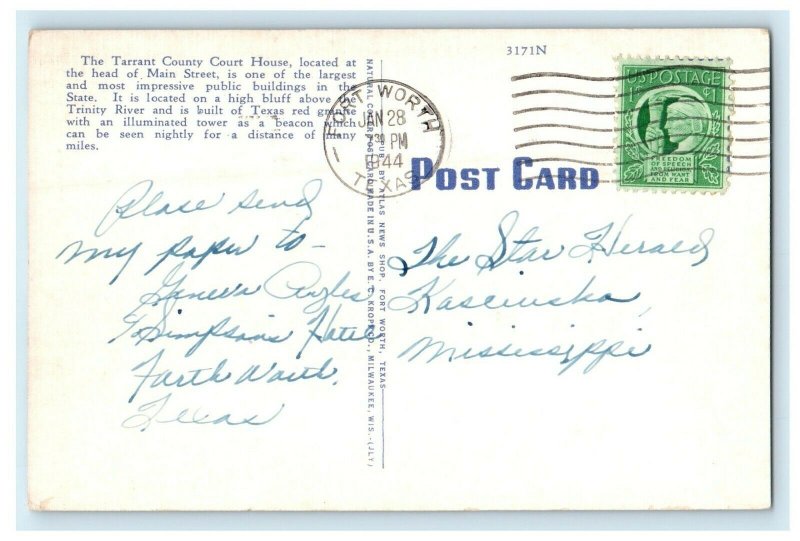 3171N
The Tarrant County Court House, located at
the head of Main Street, is one of the largest
and most impressive public buildings in the
State. It is located on a high bluff above the
Trinity River and is built of Texas red granite
with an illuminated tower as a beacon which
can be seen nightly for a distance of many
miles.
FORT WORTH
JAN 28
7 30 PM
1944
TEXAS
U.S. POSTAGE
1¢
FREEDOM
OF SPEECH
AND RELIGION,
FROM WANT
AND FEAR
POST CARD
Please send
my paper to -
Geneva
% Simpson's Hotel
Forth Worth.
Texas
The Star Herald
Kosciusko,
Mississippi
PUB. BY ATLAS NEWS SHOP, FORT WORTH, TEXAS
NATURAL COLOR POST CARD MADE IN U.S.A. BY E. C. KROPP CO., MILWAUKEE, WIS.-(JLY)